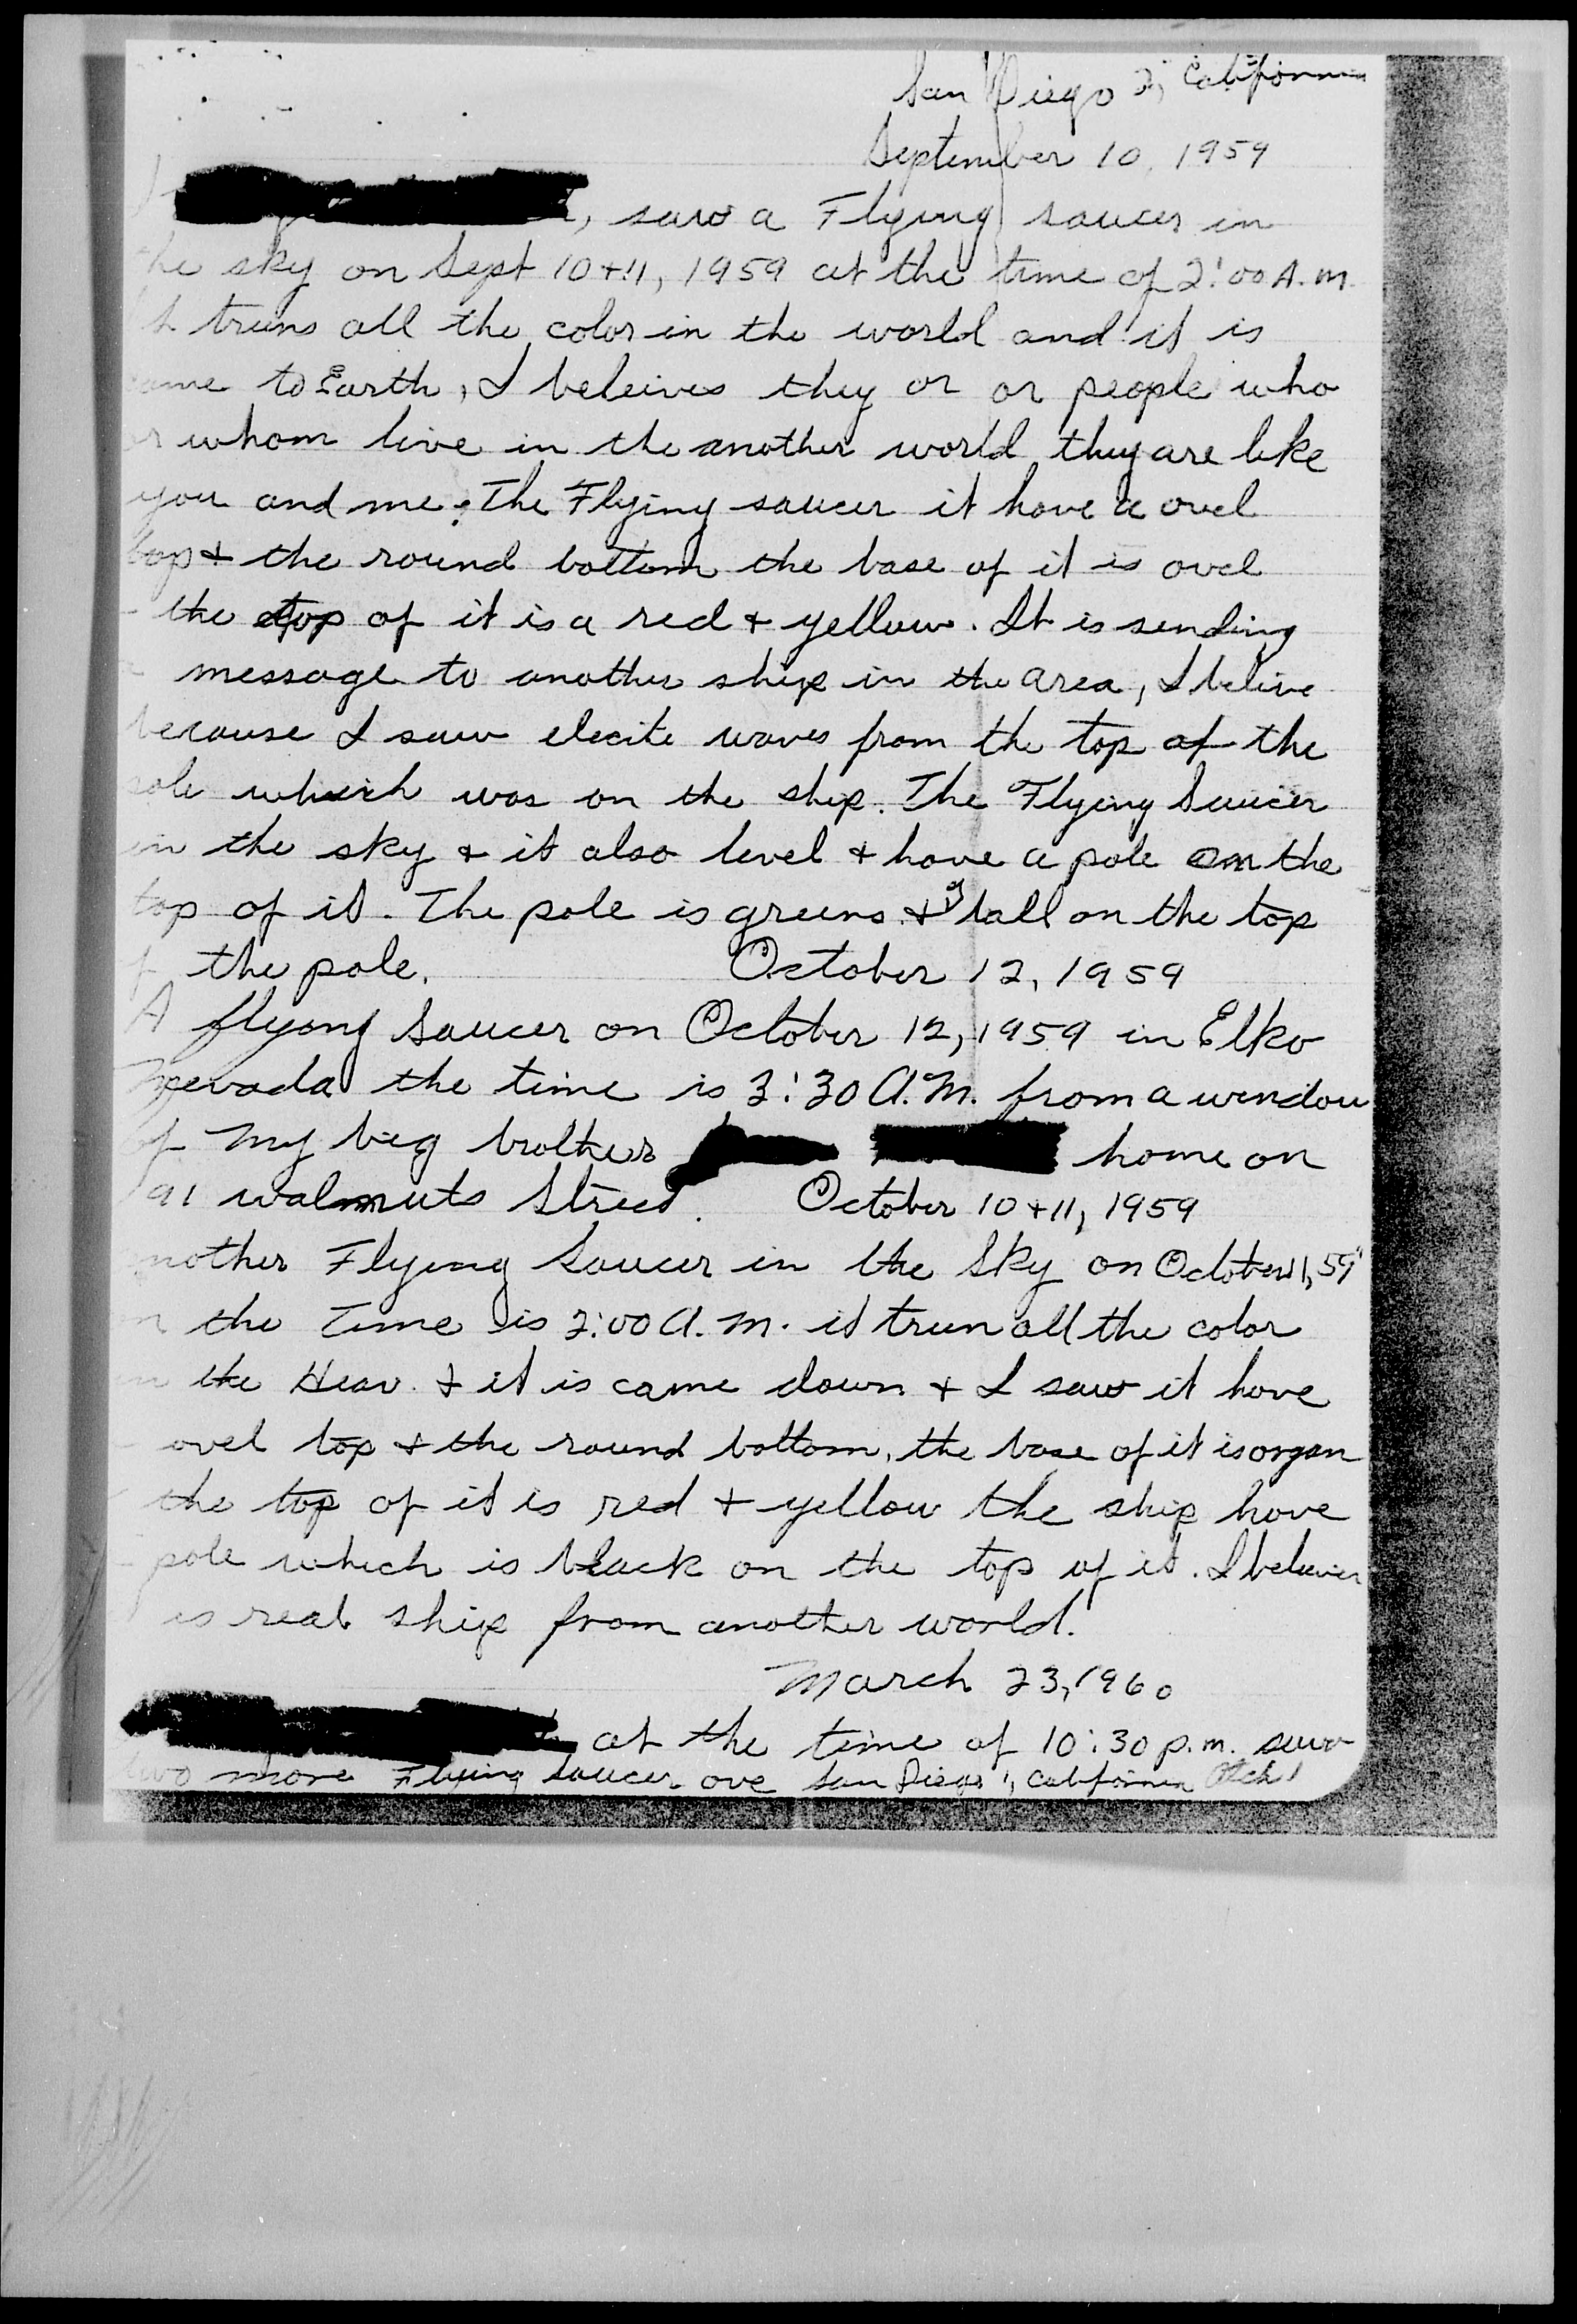 San Diego 2, California
September 10, 1959
I, saw a Flying saucer in
the sky on Sept 10 + 11, 1959 at the time of 2:00 A.M.
truns all the color in the world and it is
came to Earth, I beleives they or or people who
or whom live in the another world they are like
you and me. The Flying saucer it have a ovel
top + the round bottom the base of it is ovel
the top of it is a red + yellow. It is sending
message to another ship in the area, I belive
because I saw elecite waves from the top of the
pole which was on the ship. The Flying Saucer
in the sky + it also level + have a pole on the
top of it. The pole is greens + ball on the top
of the pole. October 12, 1959
A flyong Saucer on October 12, 1959 in Elko
Nevada the time is 3:30 A.M. from a window
of my big brothers home on
91 walmuts Street. October 10 + 11, 1959
nother Flying Saucer in the Sky on October 11, 59
the Time is 2:00 A.M. it trun all the color
in the Heav. + it is came down + I saw it have
ovel top + the round bottom, the base of it is orgen
the top of it is red + yellow the ship have
pole which is black on the top of it. I beleives
is real ship from another world.
March 23, 1960
at the time of 10:30 p.m. saw
two more Flying Saucer ove San Diego 1, California